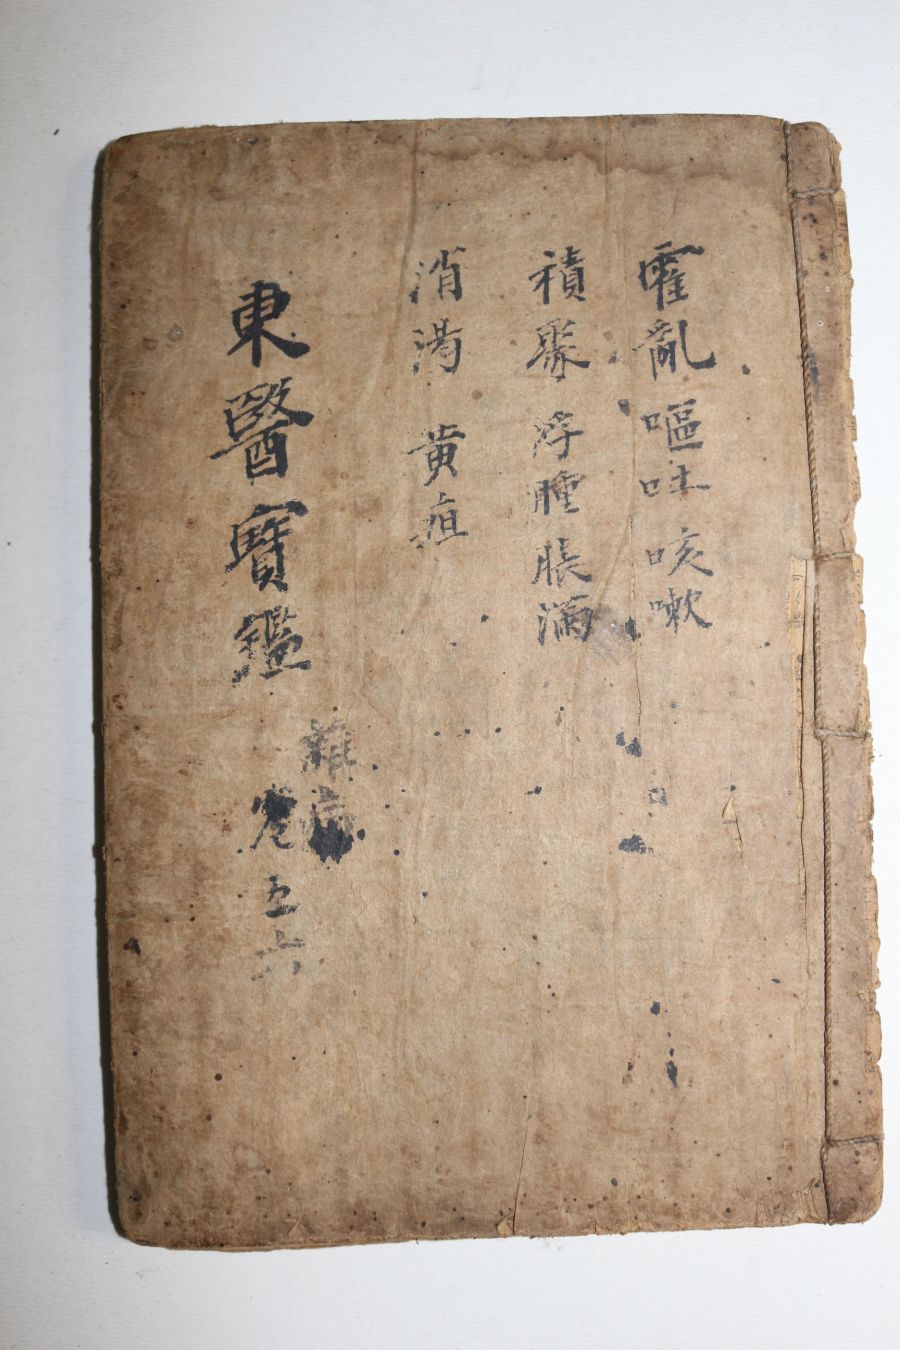 霍亂 嘔吐 咳嗽
積聚 浮腫 脹滿
消渴 黄疸
東醫寶鑑
雜病
卷五六